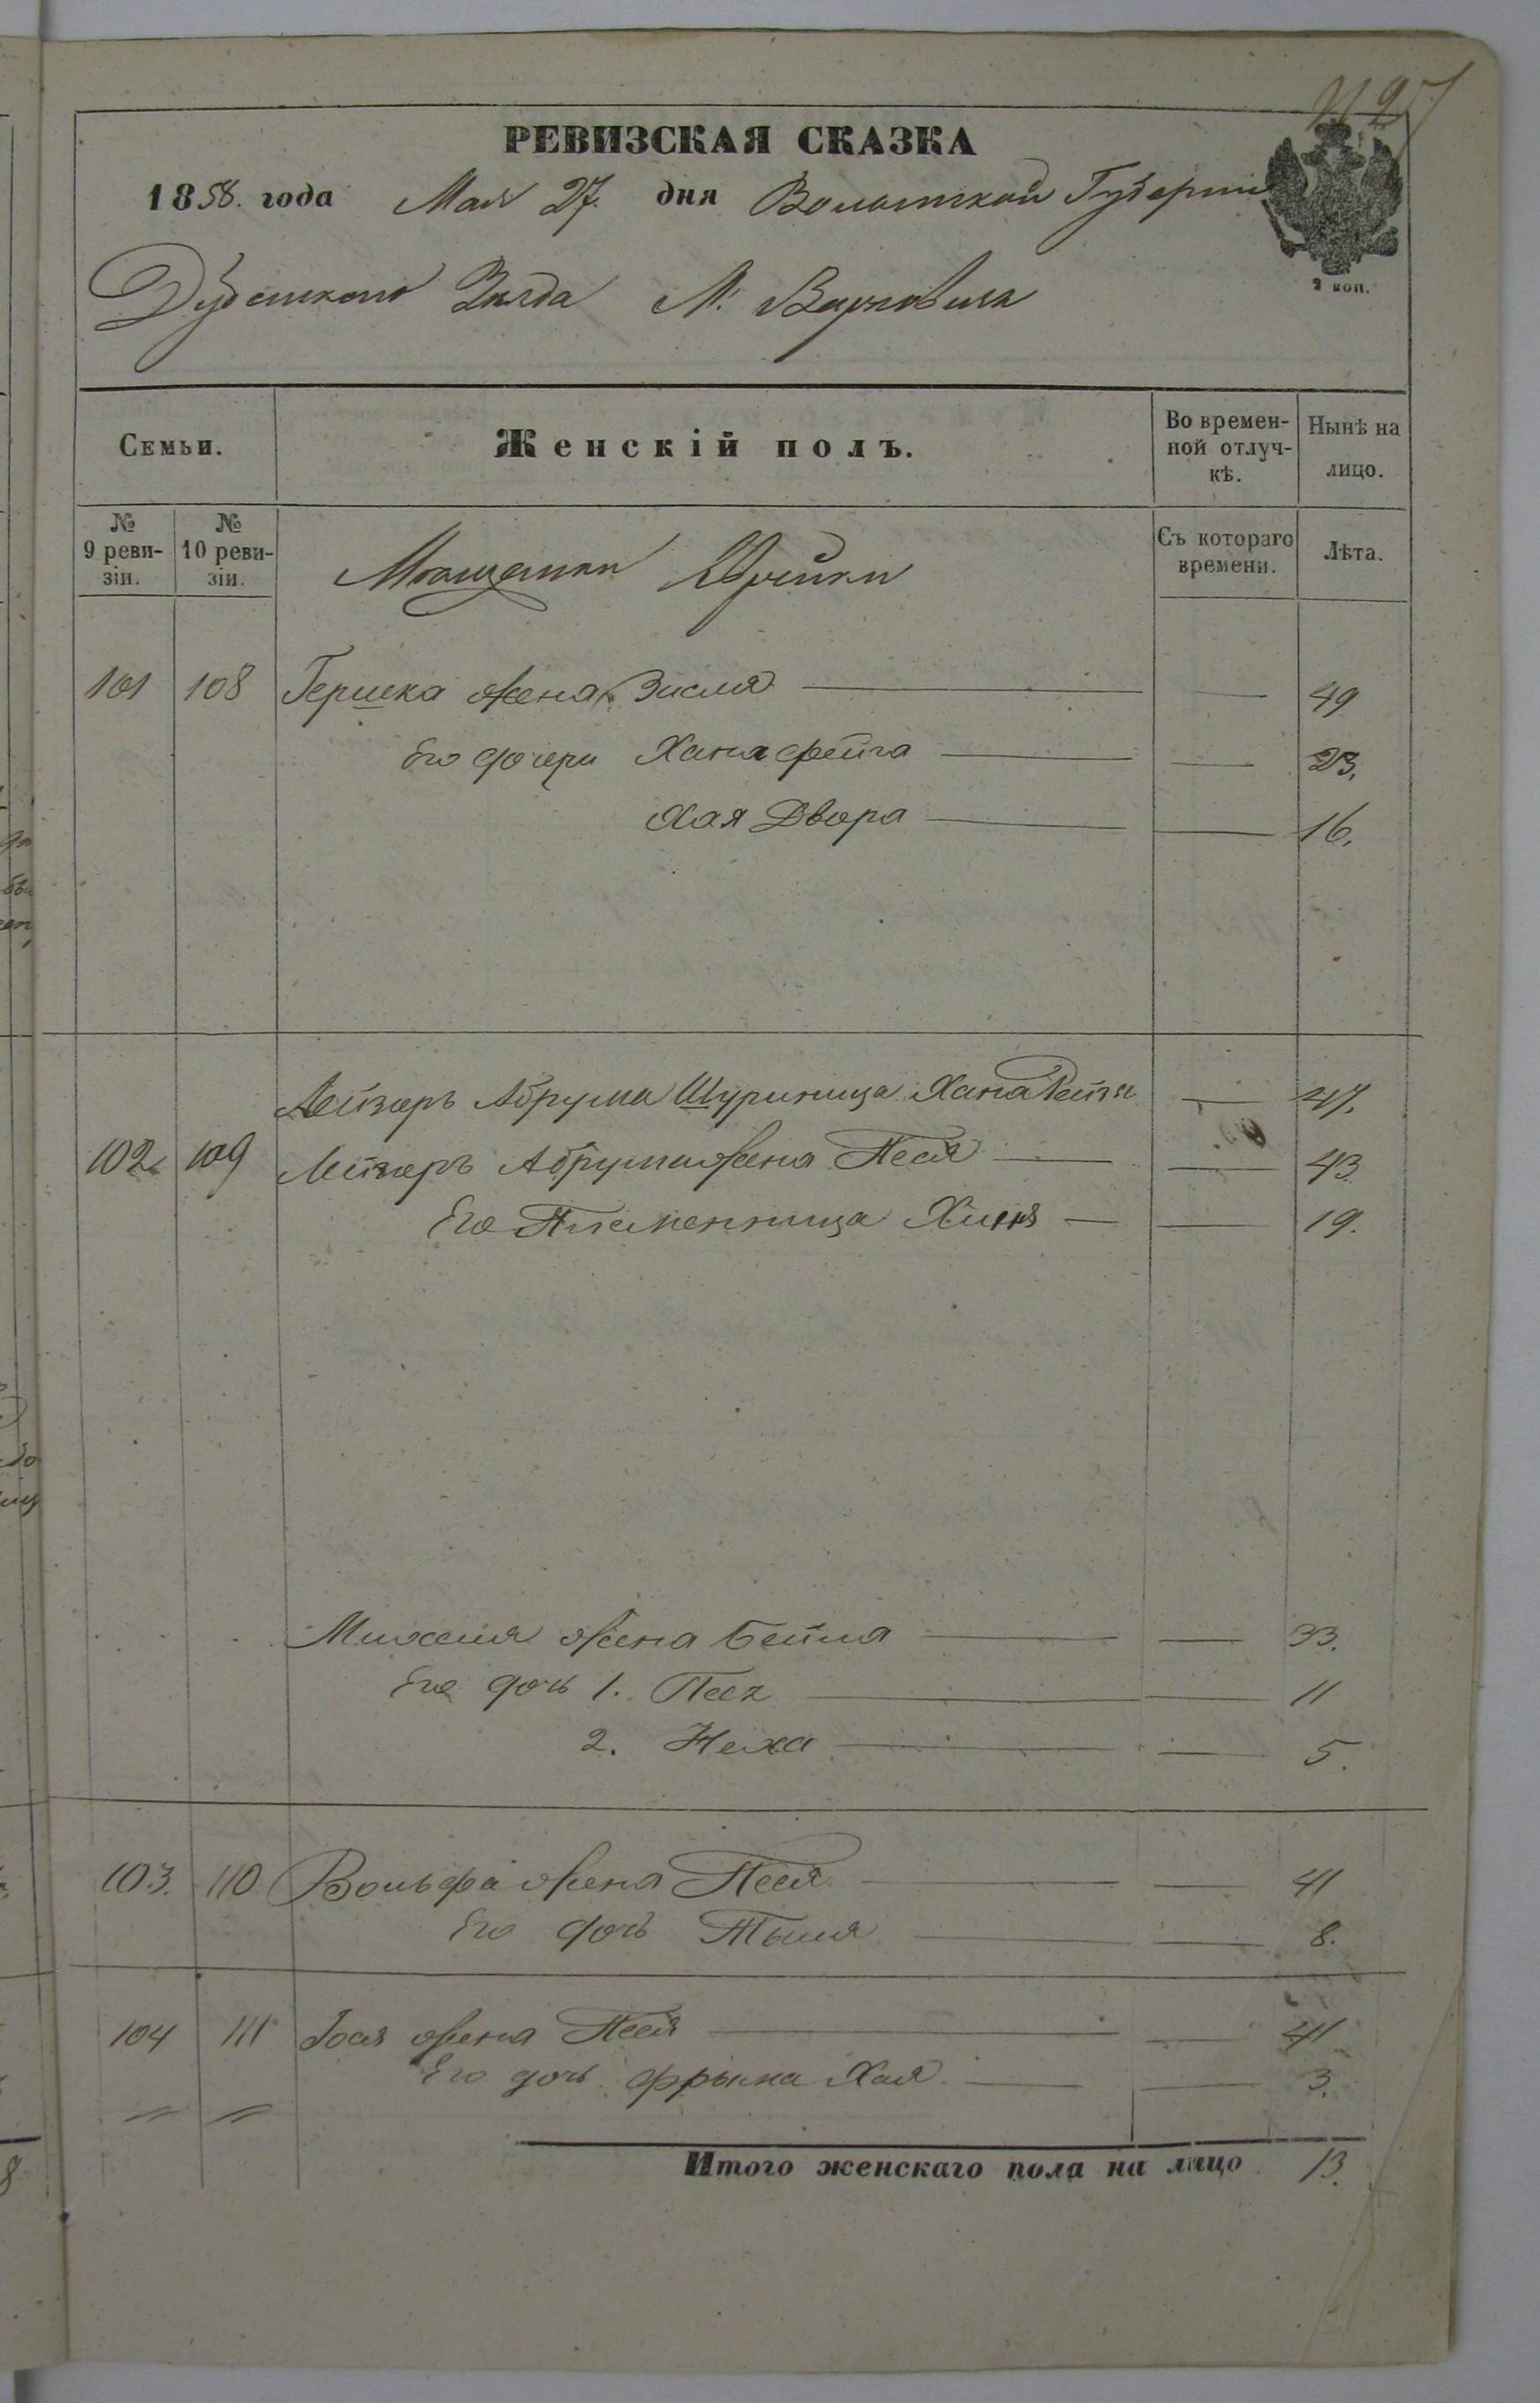 РЕВИЗСКАЯ СКАЗКА
1858. года Мая 27. дня Волынской Губерніи
2 коп.
Дубенского Уѣзда М. Варковичъ
Семьи.
Женскій полъ.
Во временной отлучкѣ.
Нынѣ на лицо.
№ 9 ревизіи.
№ 10 ревизіи.
Мѣщанки Еврейки
Съ котораго времени.
Лѣта.
101 108 Гершка жена Зисля — — 49
Его дочери Хана фейга — — 23.
Хая Двора — — 16.
Лейзоръ Абрума Шуриница Хана Рейзя — 47.
102 109 Лейзоръ Абрума жена Песя — — 43
Его Племенница Хиня — — 19.
Михеля жена Бейла — — 33.
Его дочь 1. Песя — — 11
2. Неха — — 5.
103. 110 Вольфа жена Песя — — 41
Его дочь Тыля — — 8.
104 111 жена Песя — — 41
Его дочь фрыма Хая — — 3.
Итого женскаго пола на лицо 13.